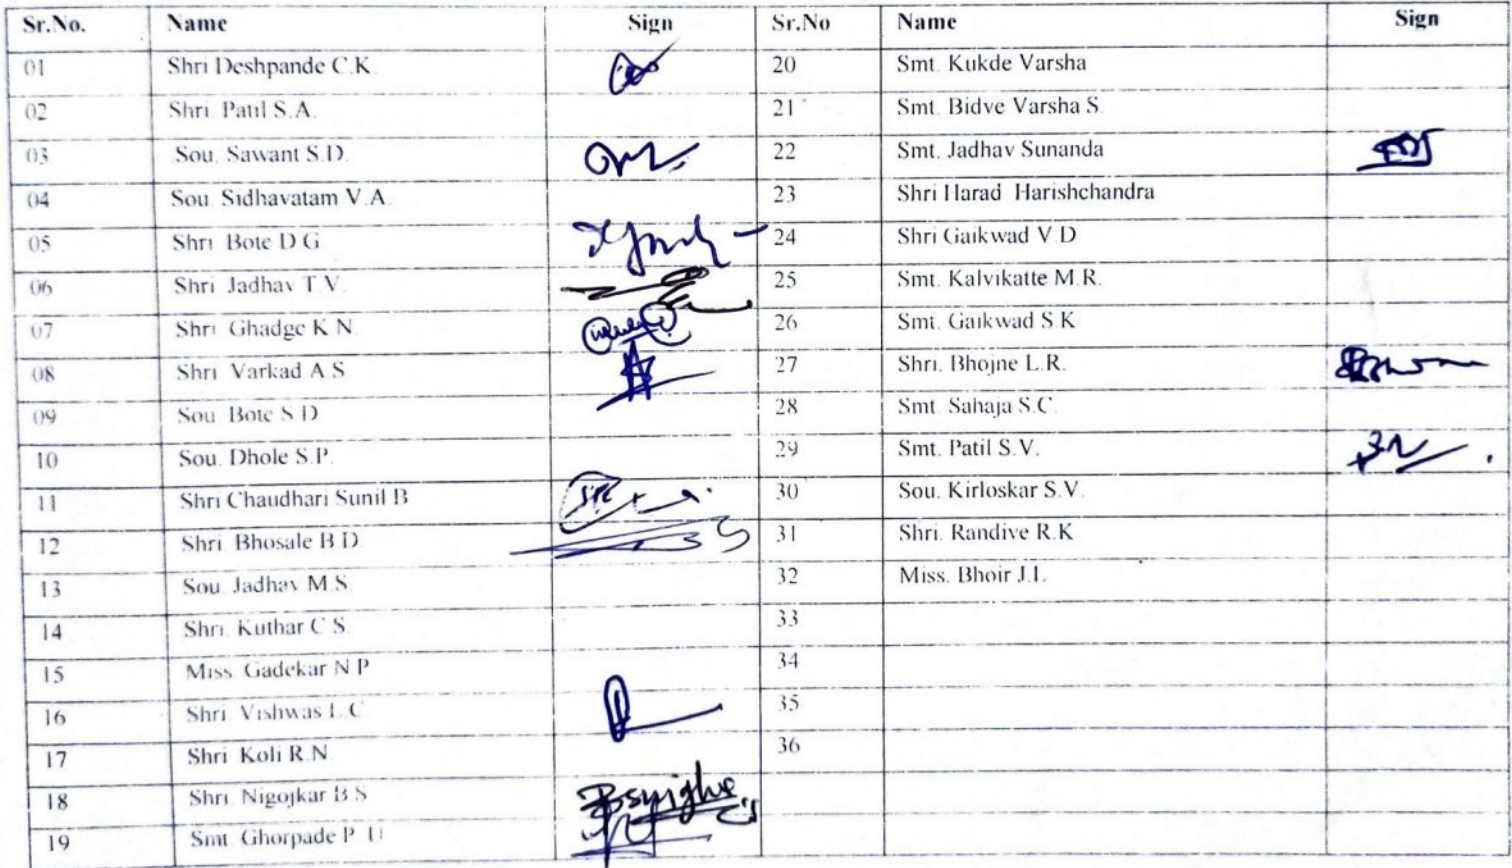 Sr.No. Name Sign Sr.No Name Sign
01 Shri Deshpande C.K. 20 Smt. Kukde Varsha
02 Shri. Patil S.A. 21 Smt. Bidve Varsha S.
03 Sou. Sawant S.D. 22 Smt. Jadhav Sunanda
04 Sou. Sidhavatam V.A. 23 Shri Harad Harishchandra
05 Shri Bote D G 24 Shri Gaikwad V.D
06 Shri. Jadhav T.V. 25 Smt. Kalvikatte M.R.
07 Shri. Ghadge K.N. 26 Smt. Gaikwad S.K
08 Shri Varkad A.S 27 Shri. Bhojne L.R.
09 Sou. Bote S.D 28 Smt. Sahaja S.C.
10 Sou. Dhole S.P. 29 Smt. Patil S.V.
11 Shri Chaudhari Sunil B 30 Sou. Kirloskar S.V.
12 Shri. Bhosale B.D. 31 Shri. Randive R.K
13 Sou. Jadhav M.S. 32 Miss. Bhoir J.L.
14 Shri. Kuthar C.S. 33
15 Miss. Gadekar N P 34
16 Shri. Vishwas L.C 35
17 Shri Koli R.N. 36
18 Shri. Nigojkar B S
19 Smt. Ghorpade P. U